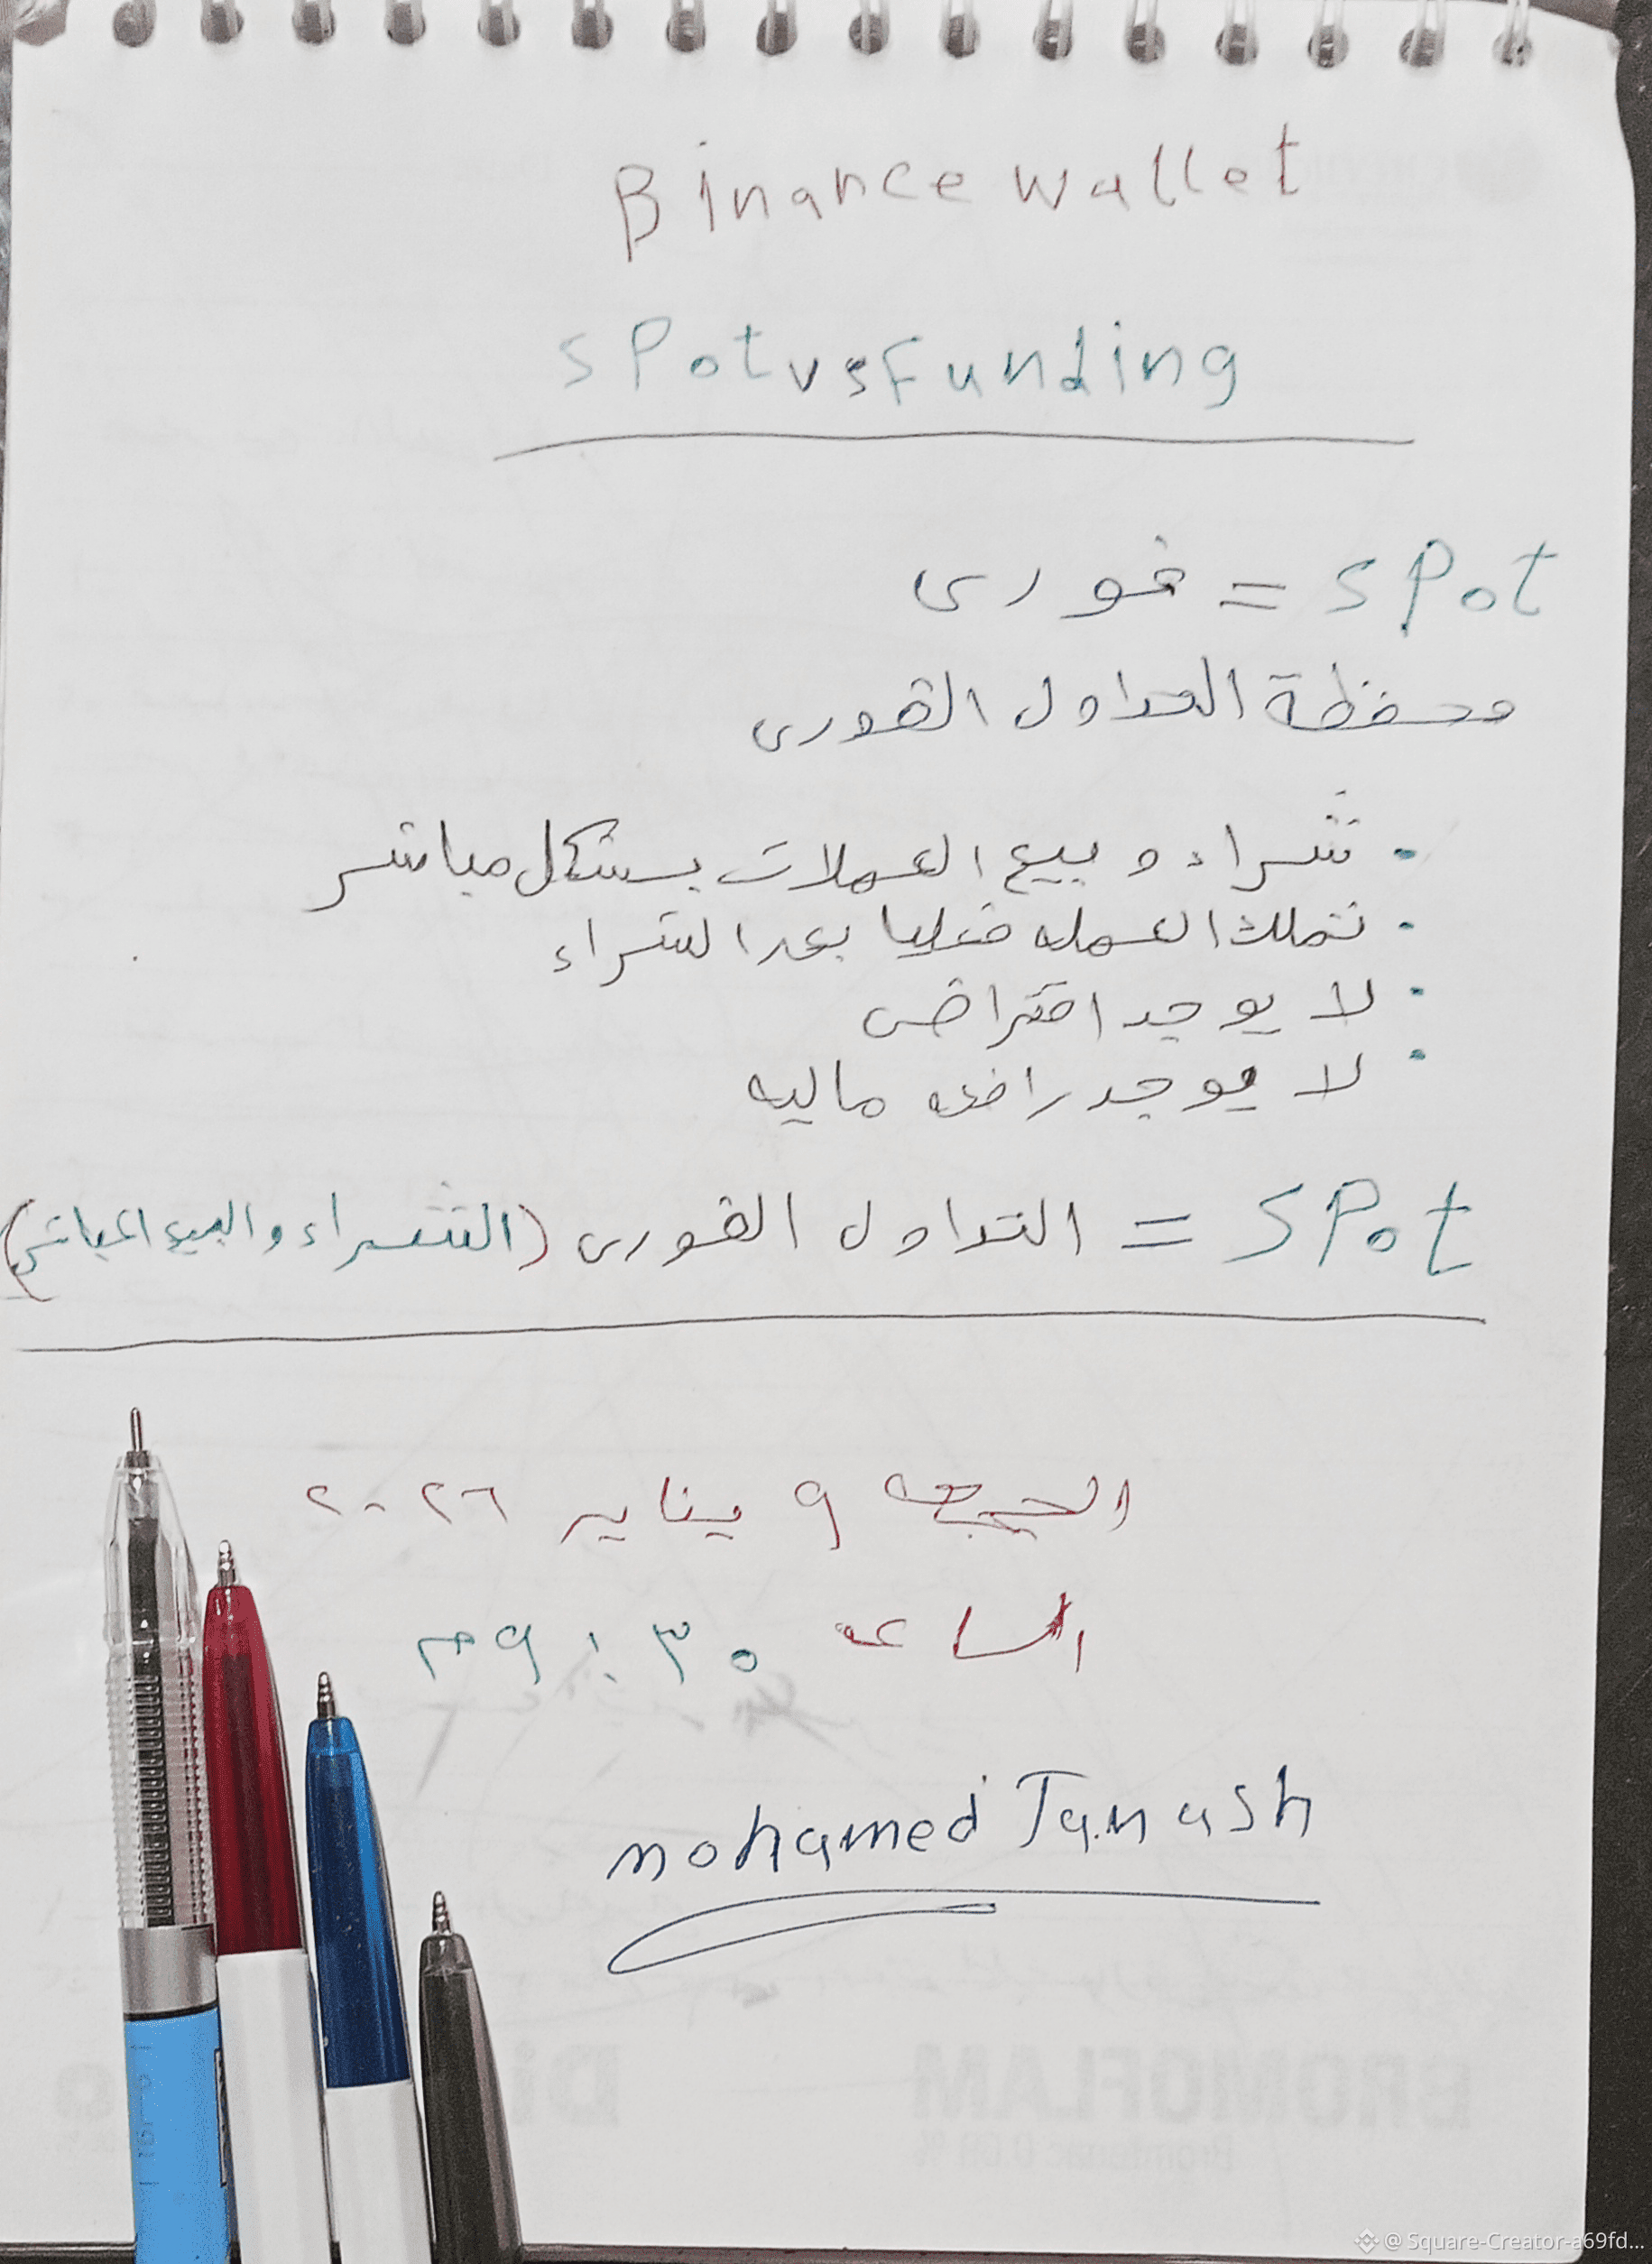 Binance wallet
SPot vs Funding
SPot = فورى
محفظة التداول الفورى
• شراء و بيع العملات بشكل مباشر
• تتملك العمله فعليا بعد الشراء
• لا يوجد اقتراض
• لا يوجد رافعه ماليه
SPot = التداول الفورى (الشراء والبيع المباشر)
الجمعه ٩ يناير ٢٠٢٦
الساعه ٩:٣٠ م
mohamed Tanash
BROMOFLAM
Bromfenac 0.09 %
@Square-Creator-a69fd...